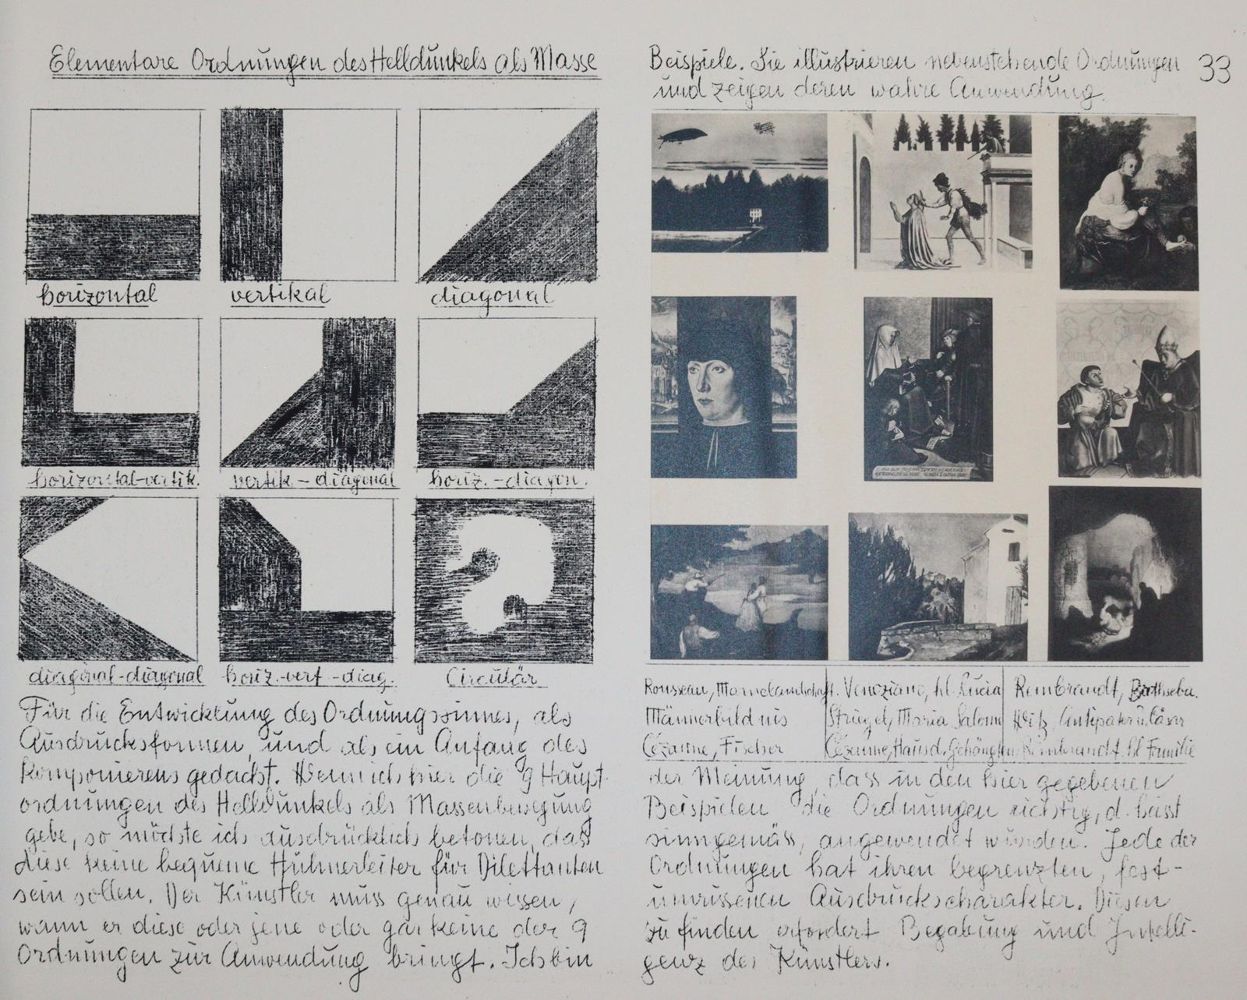 Elementare Ordnungen des Helldunkels als Masse
horizontal
vertikal
diagonal
horizontal-vertik.
vertik - diagonal
horiz. - diagon.
diagonal-diagonal
horiz.-vert-diag.
Circulär
Für die Entwicklung des Ordnungssinnes, als
Ausdrucksformen, und als ein Anfang des
Komponierens gedacht. Wenn ich hier die 9 Haupt
ordnungen des Helldunkels als Massenbewegung
gebe, so möchte ich ausdrücklich betonen, daß
diese keine bequeme Hühnerleiter für Dilettanten
sein sollen. Der Künstler muss genau wissen,
wann er diese oder jene oder gar keine der 9
Ordnungen zur Anwendung bringt. Ich bin
Beispiele. Sie illustrieren nebenstehende Ordnungen
und zeigen deren wahre Anwendung.
33
Rousseau, Marnelandschaft. Veneziano, hl. Lucia Rembrandt, Bathseba.
Männerbildnis Strigel, Maria Salome Witz, Antipater u. Cäsar
Cézanne, Fischer Cézanne, Haus d. Gehängten Rembrandt. hl Familie
der Meinung, dass in den hier gegebenen
Beispielen die Ordnungen richtig, d. heisst
sinngemäss, angewendet wurden. Jede der
Ordnungen hat ihren begrenzten, fest-
umrissenen Ausdruckscharakter. Diesen
zu finden erfordert Begabung und Intelli-
genz des Künstlers.